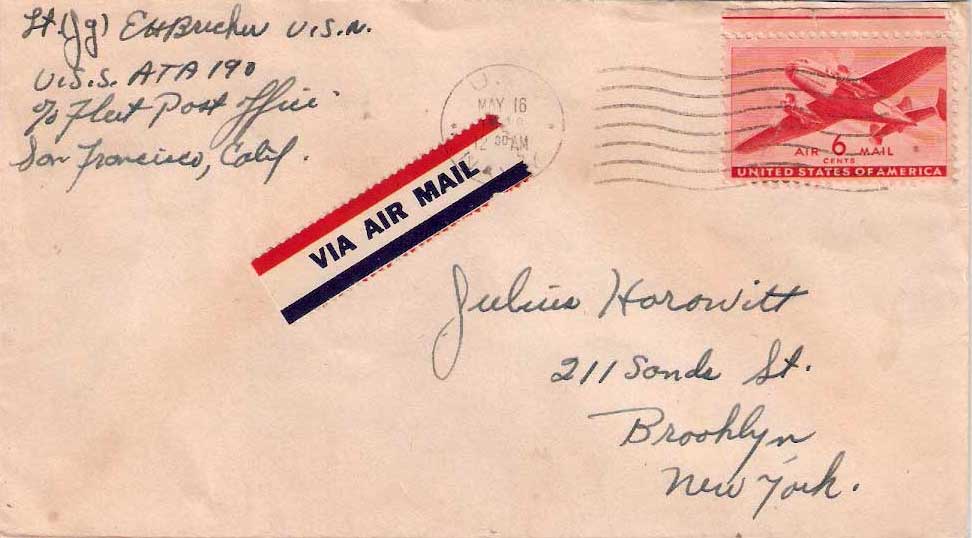 Lt. (Jg) EHBricher U.S.N.
U.S.S. ATA 190
c/o Fleet Post Office
San Francisco, Calif.
U.S.
MAY 16
12 30 AM
NAVY
VIA AIR MAIL
AIR 6 MAIL
CENTS
UNITED STATES OF AMERICA
Julius Horowitt
211 Sands St.
Brooklyn
New York.